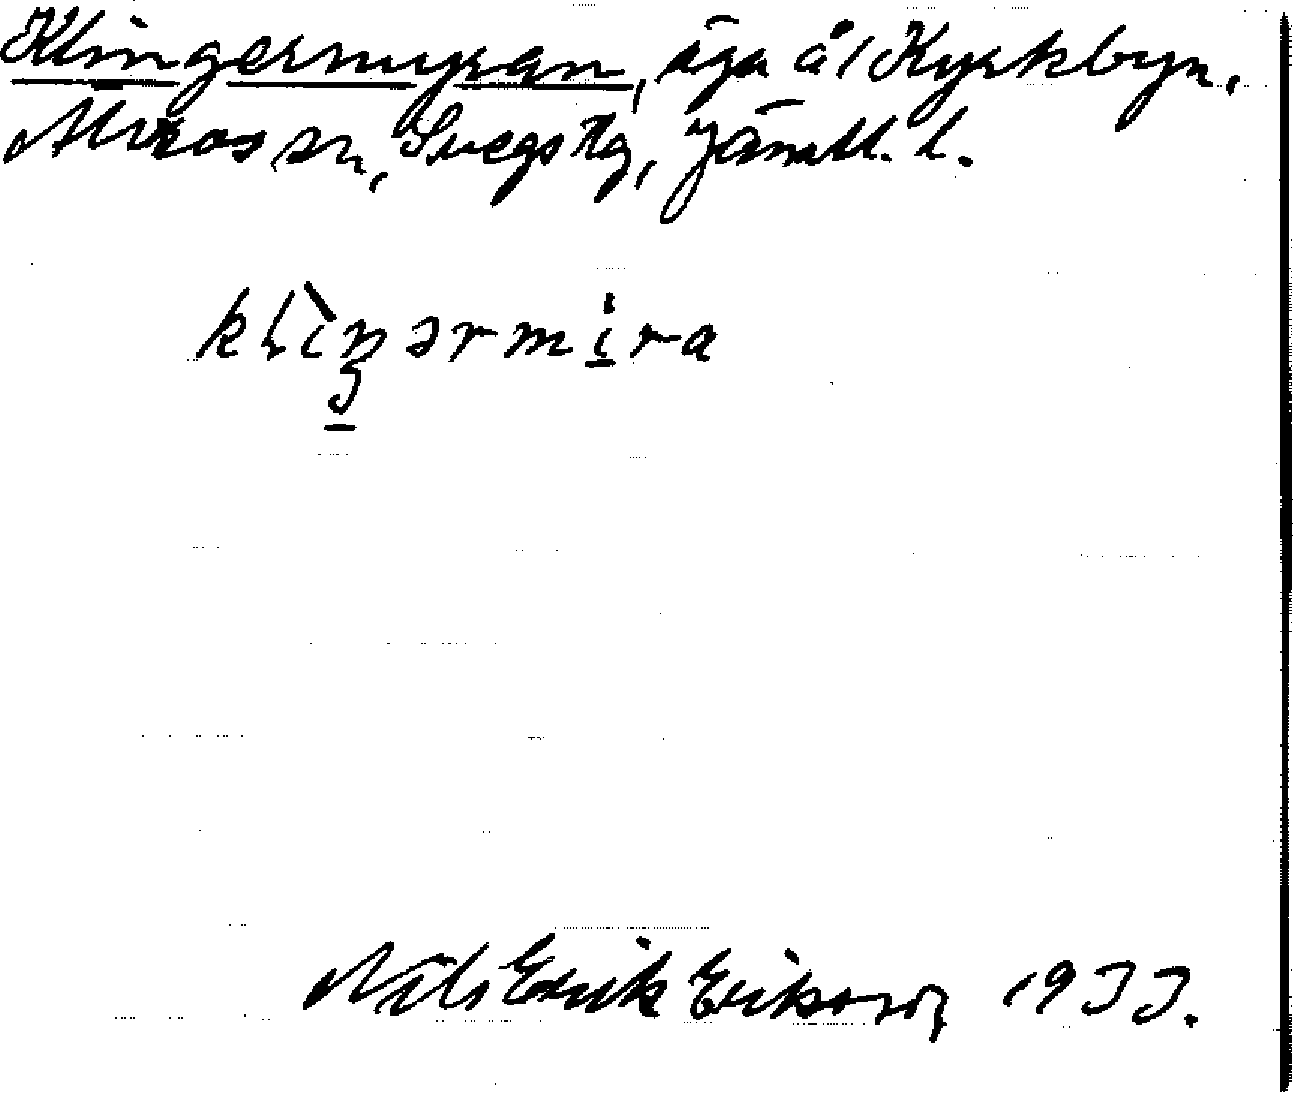 Klingermyran, äga å Kyrkbyn,
Älvros sn, Svegs tg, Jämtl. l.
klìŋərmira
Nils Erik Eriksson 1933.